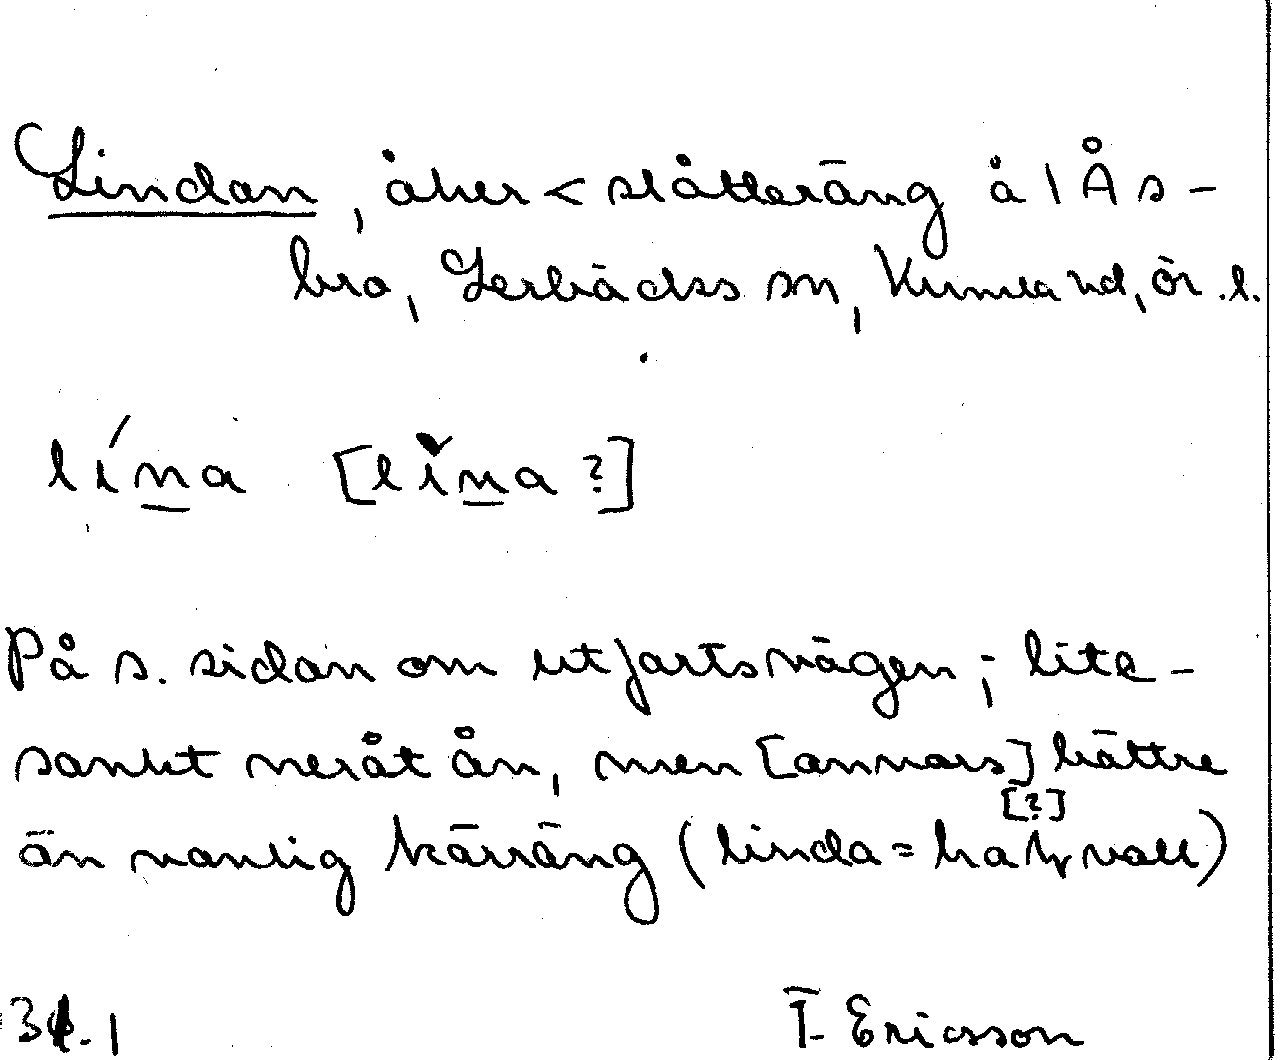 Lindan, åker < slåtteräng å l Ås-
bro, Lerbäcks sn, Kumla hd, Ör. l.
lína [lǐna ?]
På s. sidan om utfartsvägen; lite
sankt neråt ån, men [annars] bättre
[?]
än vanlig kärräng (linda = halvvall)
T. Ericsson